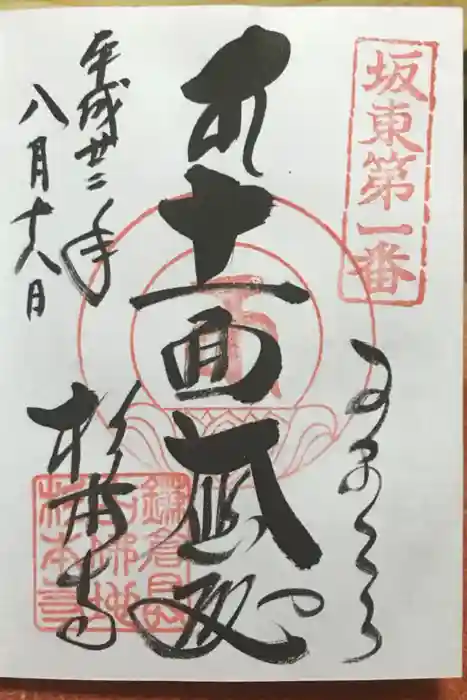 坂東第一番
かまくら
十一面大悲殿
平成廿二年
八月十八日
杉本寺
鎌倉最
古佛地
杉本寺